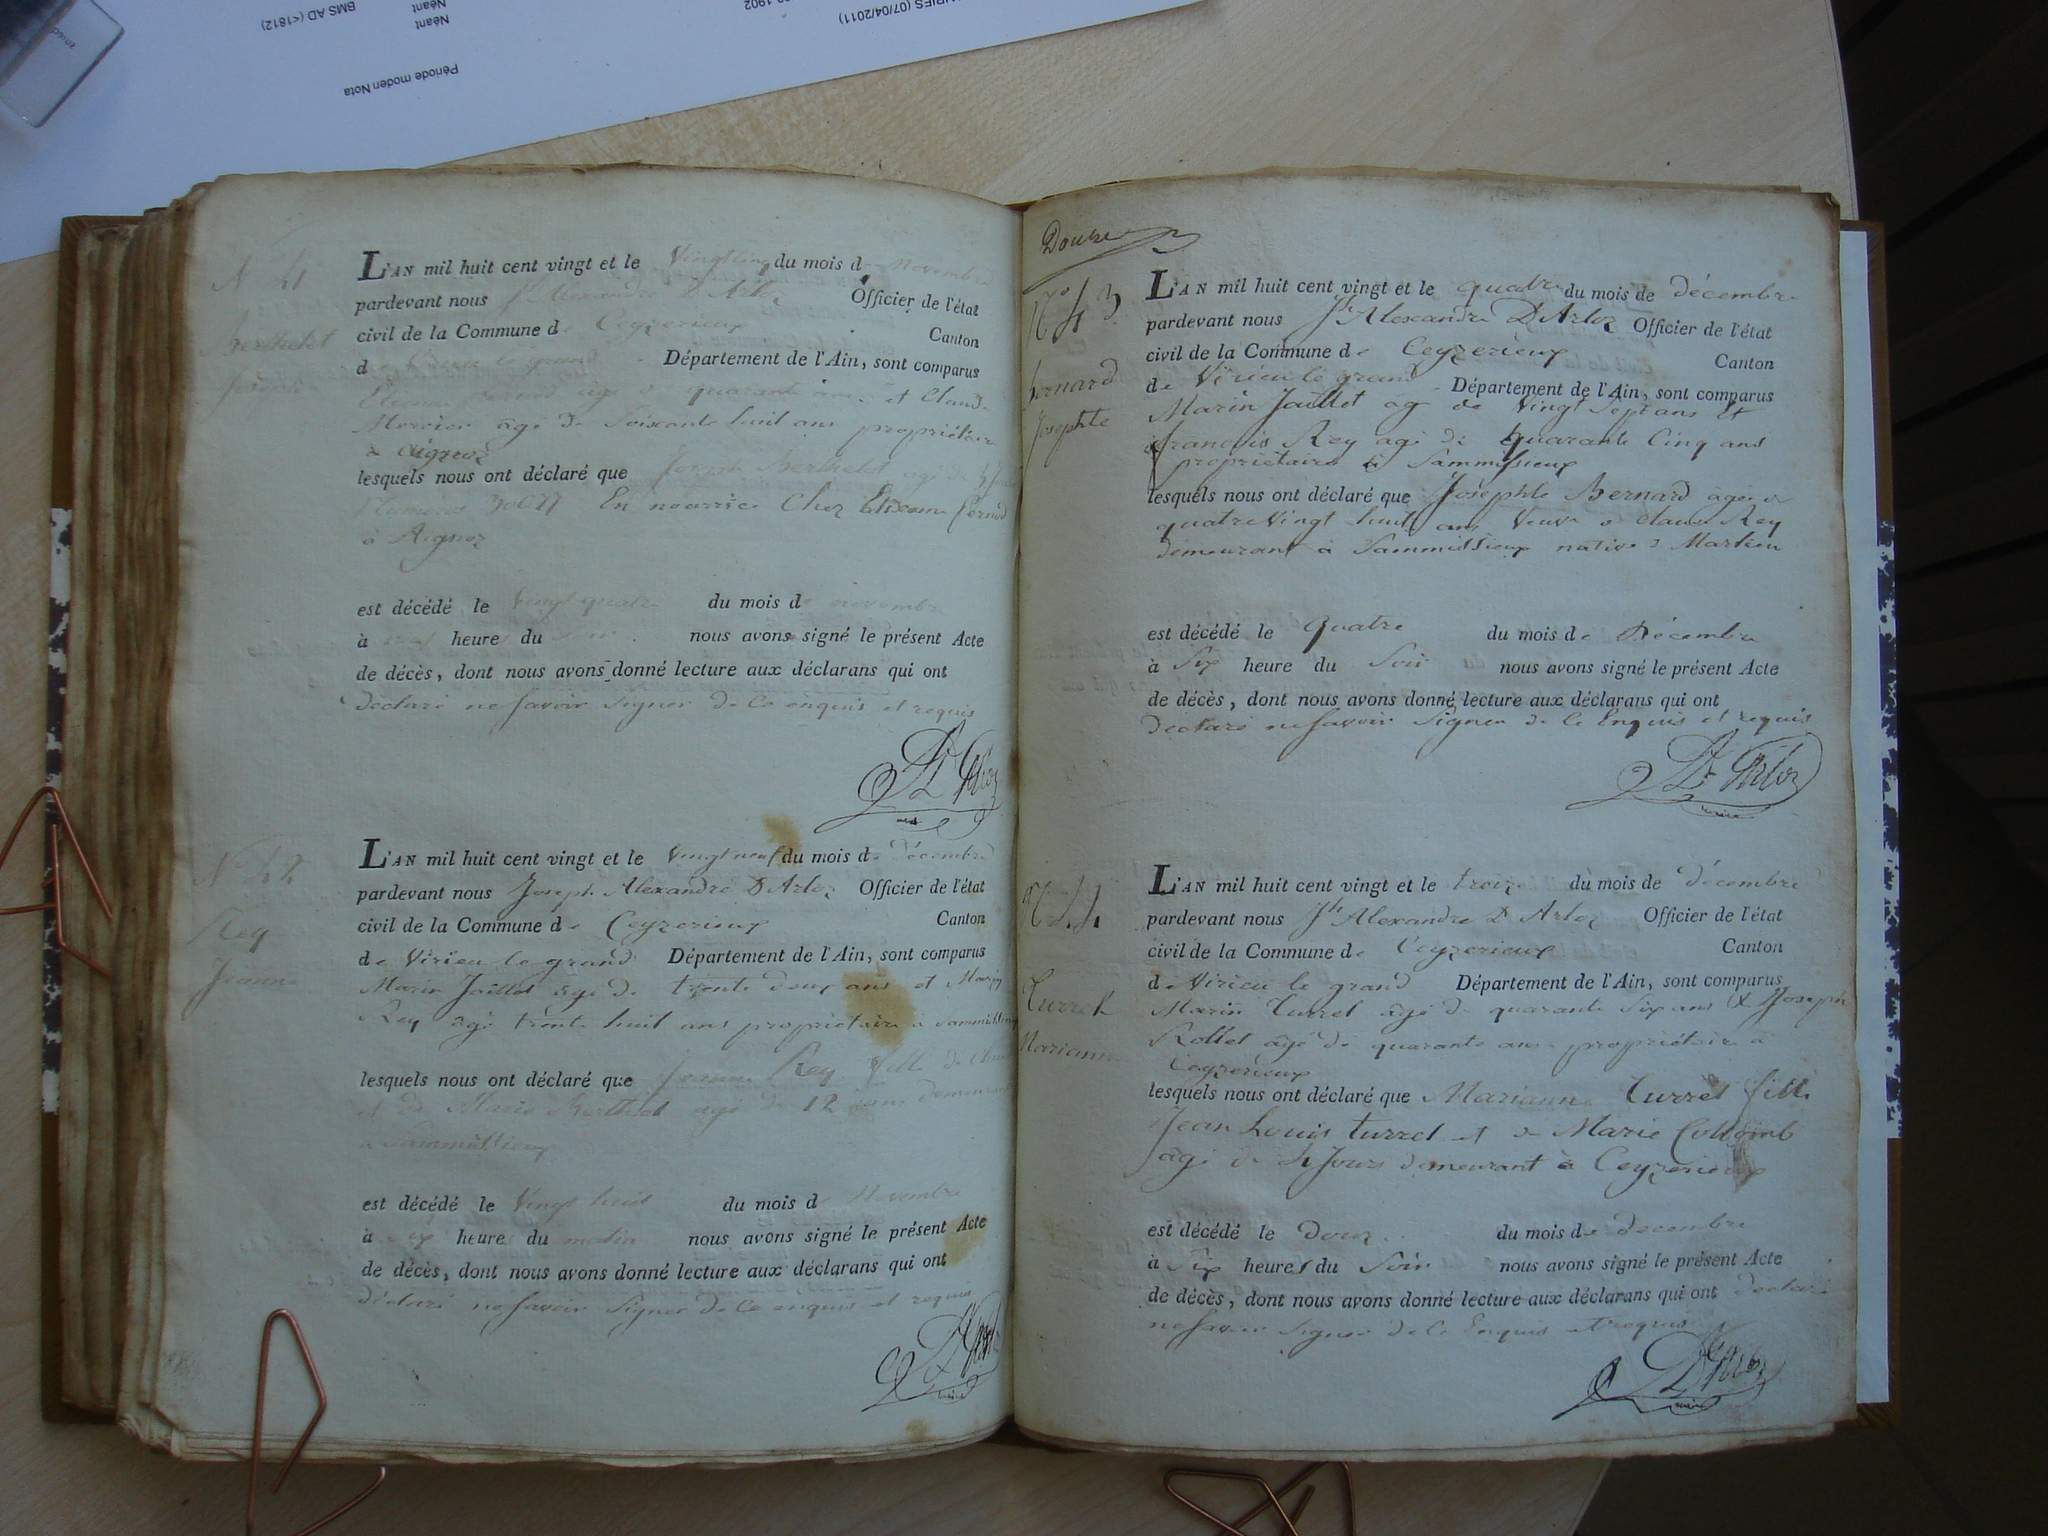 BMS AD (<1812)
Néant
Néant
1902
(07/04/2011)
Période moden Nota
N 41
Berthelet
L'AN mil huit cent vingt et le Vingt cinq du mois de novembre
pardevant nous Jh Alexandre D'Arloz Officier de l'état
civil de la Commune de Ceyzerieux Canton
de Virieu le grand Département de l'Ain, sont comparus
Etienne Pernod agé de quarante ans et Claude
Mercier agé de Soixante huit ans propriétaire
à Aignoz
lesquels nous ont déclaré que Joseph Berthelet agé de
Numéros 30677 En nourrice Chez Etienne Pernod
à Aignoz
est décédé le Vingt quatre du mois de novembre
à heure du soir nous avons signé le présent Acte
de décès, dont nous avons donné lecture aux déclarans qui ont
déclaré ne Savoir Signer de Ce enquis et requis
D'Arloz
N 42
Rey
Jeanne
L'AN mil huit cent vingt et le Vingt neuf du mois de décembre
pardevant nous Joseph Alexandre D'Arloz Officier de l'état
civil de la Commune de Ceyzerieux Canton
de Virieu le grand Département de l'Ain, sont comparus
Marin Jaillet agé de trente deux ans et Marin
Rey agé trente huit ans propriétaire à Sammissieux
lesquels nous ont déclaré que Jeanne Rey fille de Claude
et de Marie Berthet agé de 12 ans demeurant
à Sammissieux
est décédé le Vingt huit du mois de Novembre
à Six heures du matin nous avons signé le présent Acte
de décès, dont nous avons donné lecture aux déclarans qui ont
déclaré ne Savoir Signer de Ce enquis et requis
D'Arloz
maire
Douze
N° 43
Bernard
Josephte
L'AN mil huit cent vingt et le quatre du mois de décembre
pardevant nous Jh Alexandre D'Arloz Officier de l'état
civil de la Commune de Ceyzerieux Canton
de Virieu le grand Département de l'Ain, sont comparus
Marin Jaillet agé de Vingt Sept ans Et
francois Rey agé de quarante Cinq ans
propriétaires à Sammissieux
lesquels nous ont déclaré que Josephte Bernard agée de
quatre Vingt huit ans Veuve de Claude Rey
demeurant à Sammissieux native de
est décédé le Quatre du mois de Décembre
à Six heure du Soir nous avons signé le présent Acte
de décès, dont nous avons donné lecture aux déclarans qui ont
déclaré ne Savoir Signer de Ce Enquis et requis
D'Arloz
maire
N° 44
Turrel
Marianne
L'AN mil huit cent vingt et le troize du mois de décembre
pardevant nous Jh Alexandre D'Arloz Officier de l'état
civil de la Commune de Ceyzerieux Canton
de Virieu le grand Département de l'Ain, sont comparus
Marin Turrel agé de quarante Six ans & Joseph
Rollet agé de quarante ans propriétaire à
Ceyzerieux
lesquels nous ont déclaré que Marianne Turrel fille
Jean Louis turrel et de Marie Collomb
agé de Jours demeurant à Ceyzerieux
est décédé le douze du mois de décembre
à Six heures du Soir nous avons signé le présent Acte
de décès, dont nous avons donné lecture aux déclarans qui ont déclaré
ne Savoir Signer de Ce Enquis et requis
D'Arloz
maire